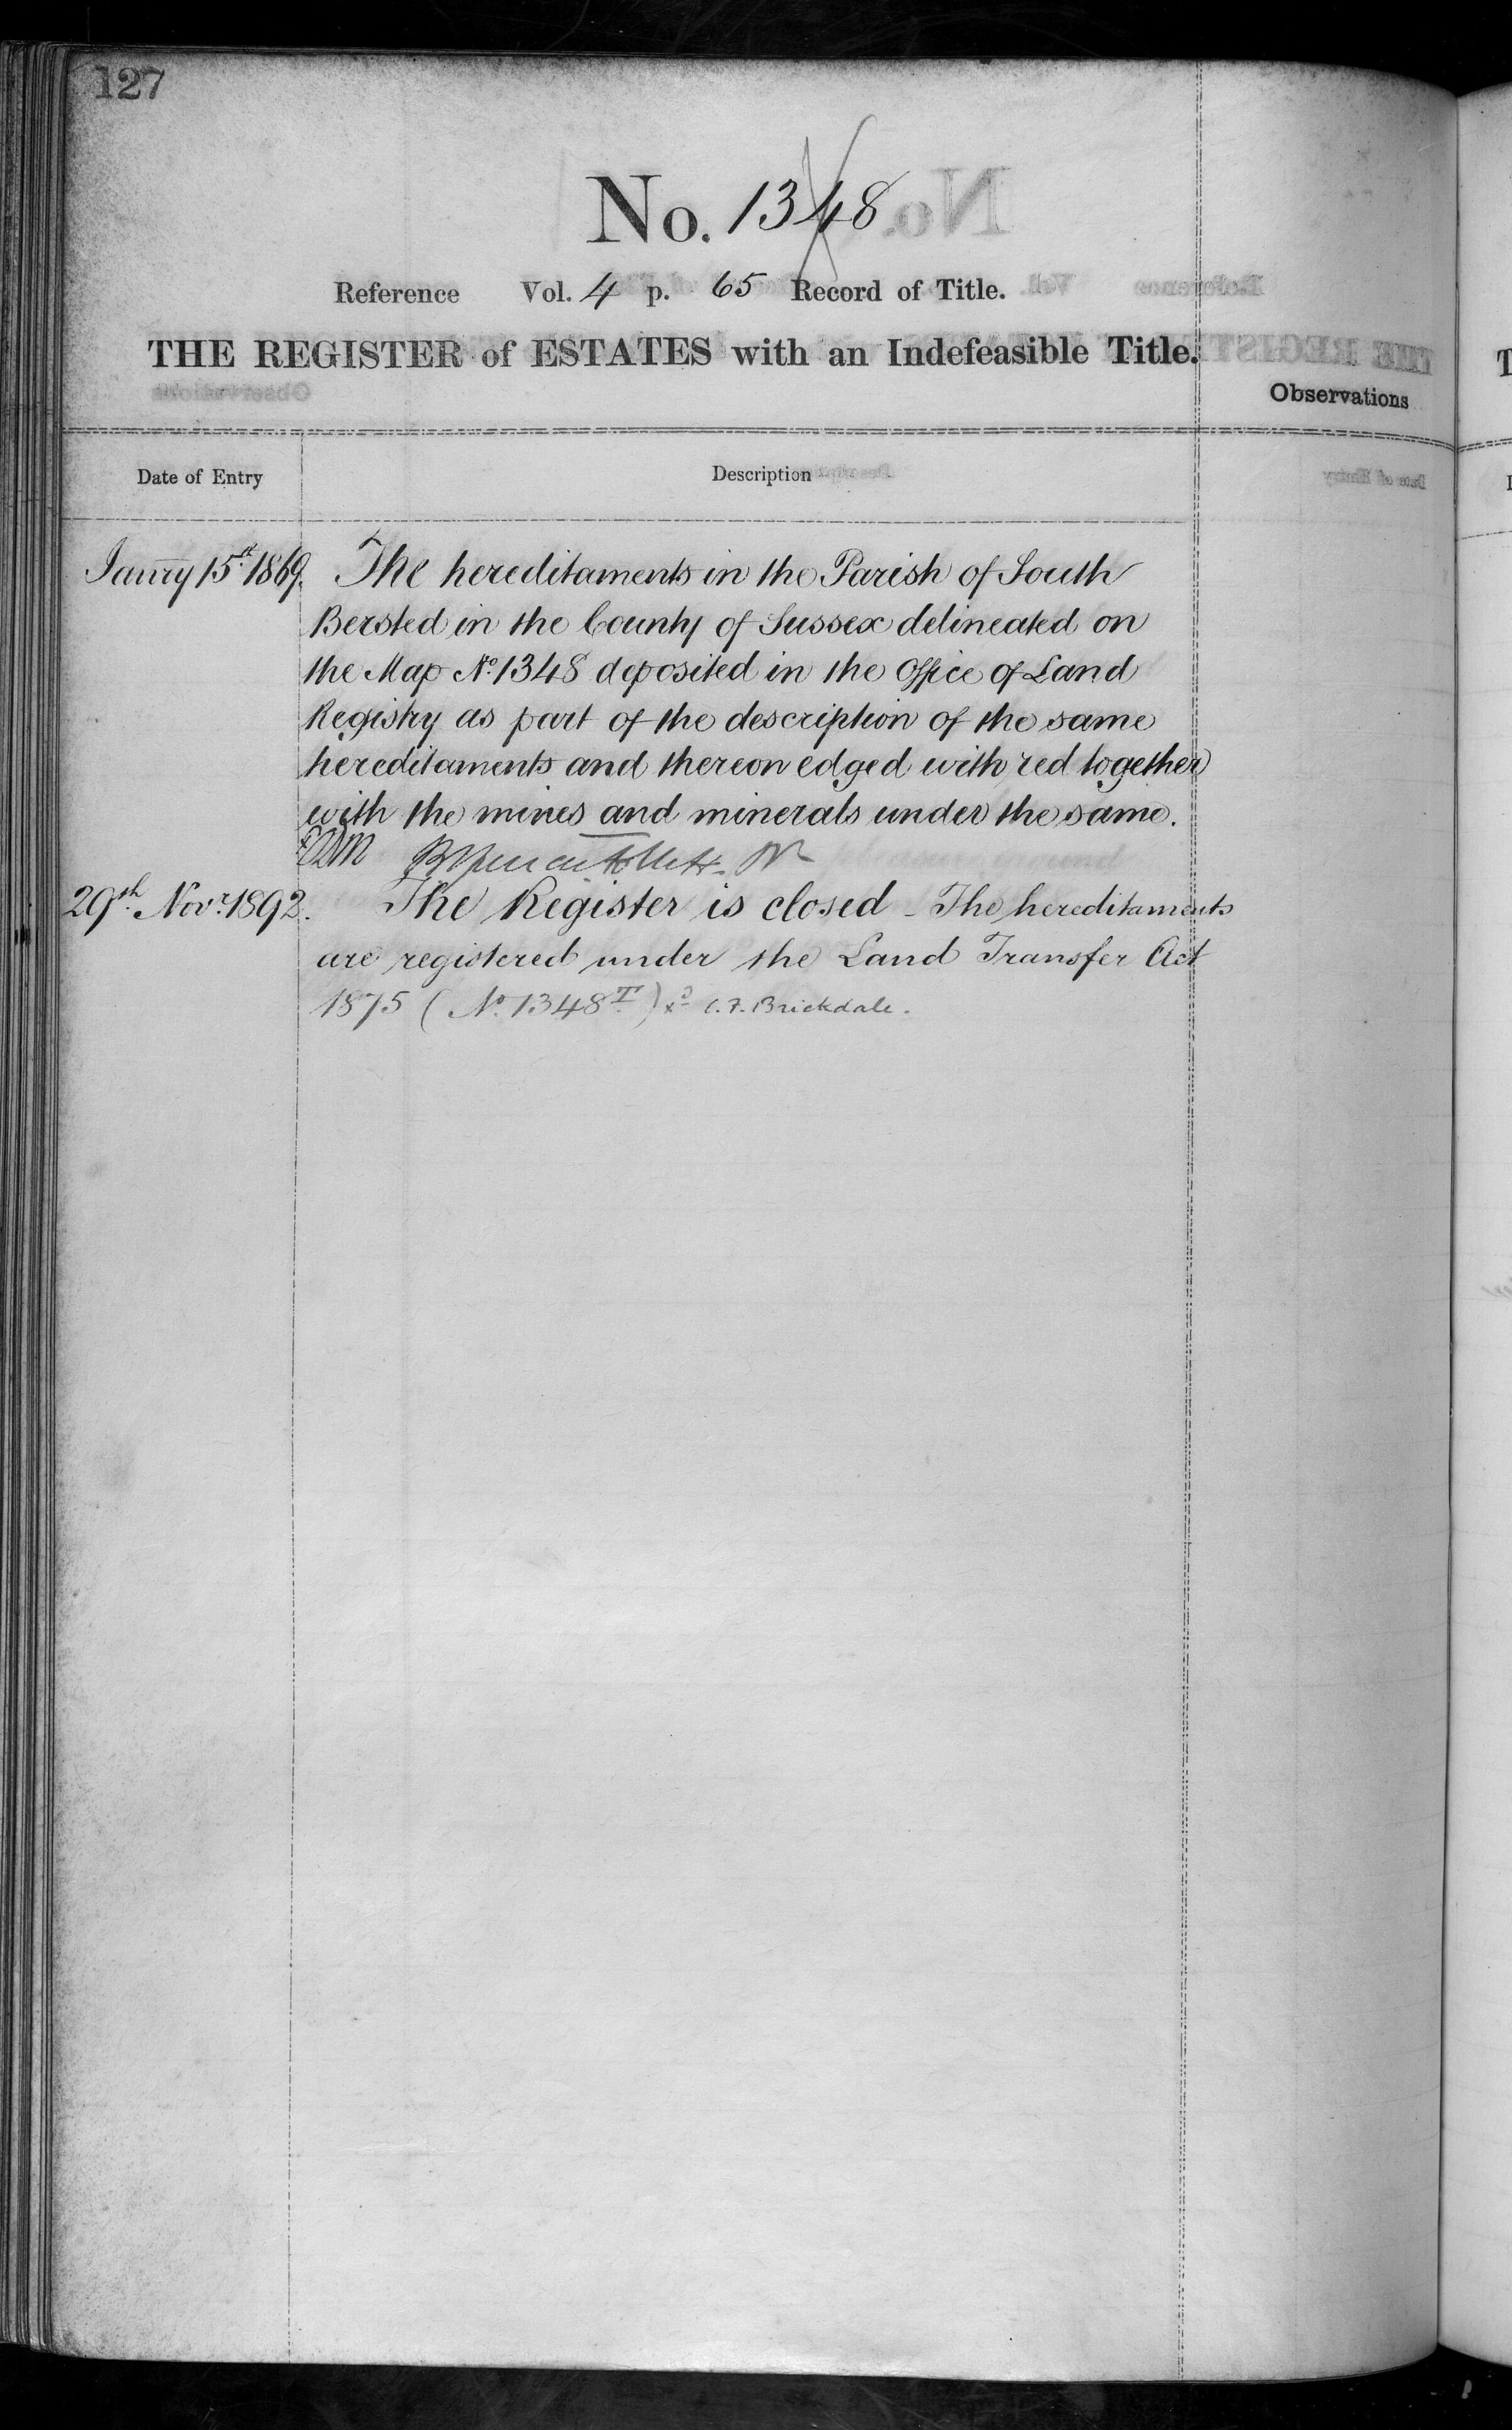 127
No. 1348
Reference Vol. 4 p. 65 Record of Title.
THE REGISTER of ESTATES with an Indefeasible Title.
Observations
Date of Entry Description
Janry 15st 1869. The hereditaments in the Parish of South
Bersted in the County of Sussex delineated on
the Map No. 1348 deposited in the Office of Land
Registry as part of the description of the same
hereditaments and thereon edged with red together
with the mines and minerals under the same.
29th Novr. 1892. The Register is closed - The hereditaments
are registered under the Land Transfer Act
1875 (No. 1348T) xd C.F. Brickdale.